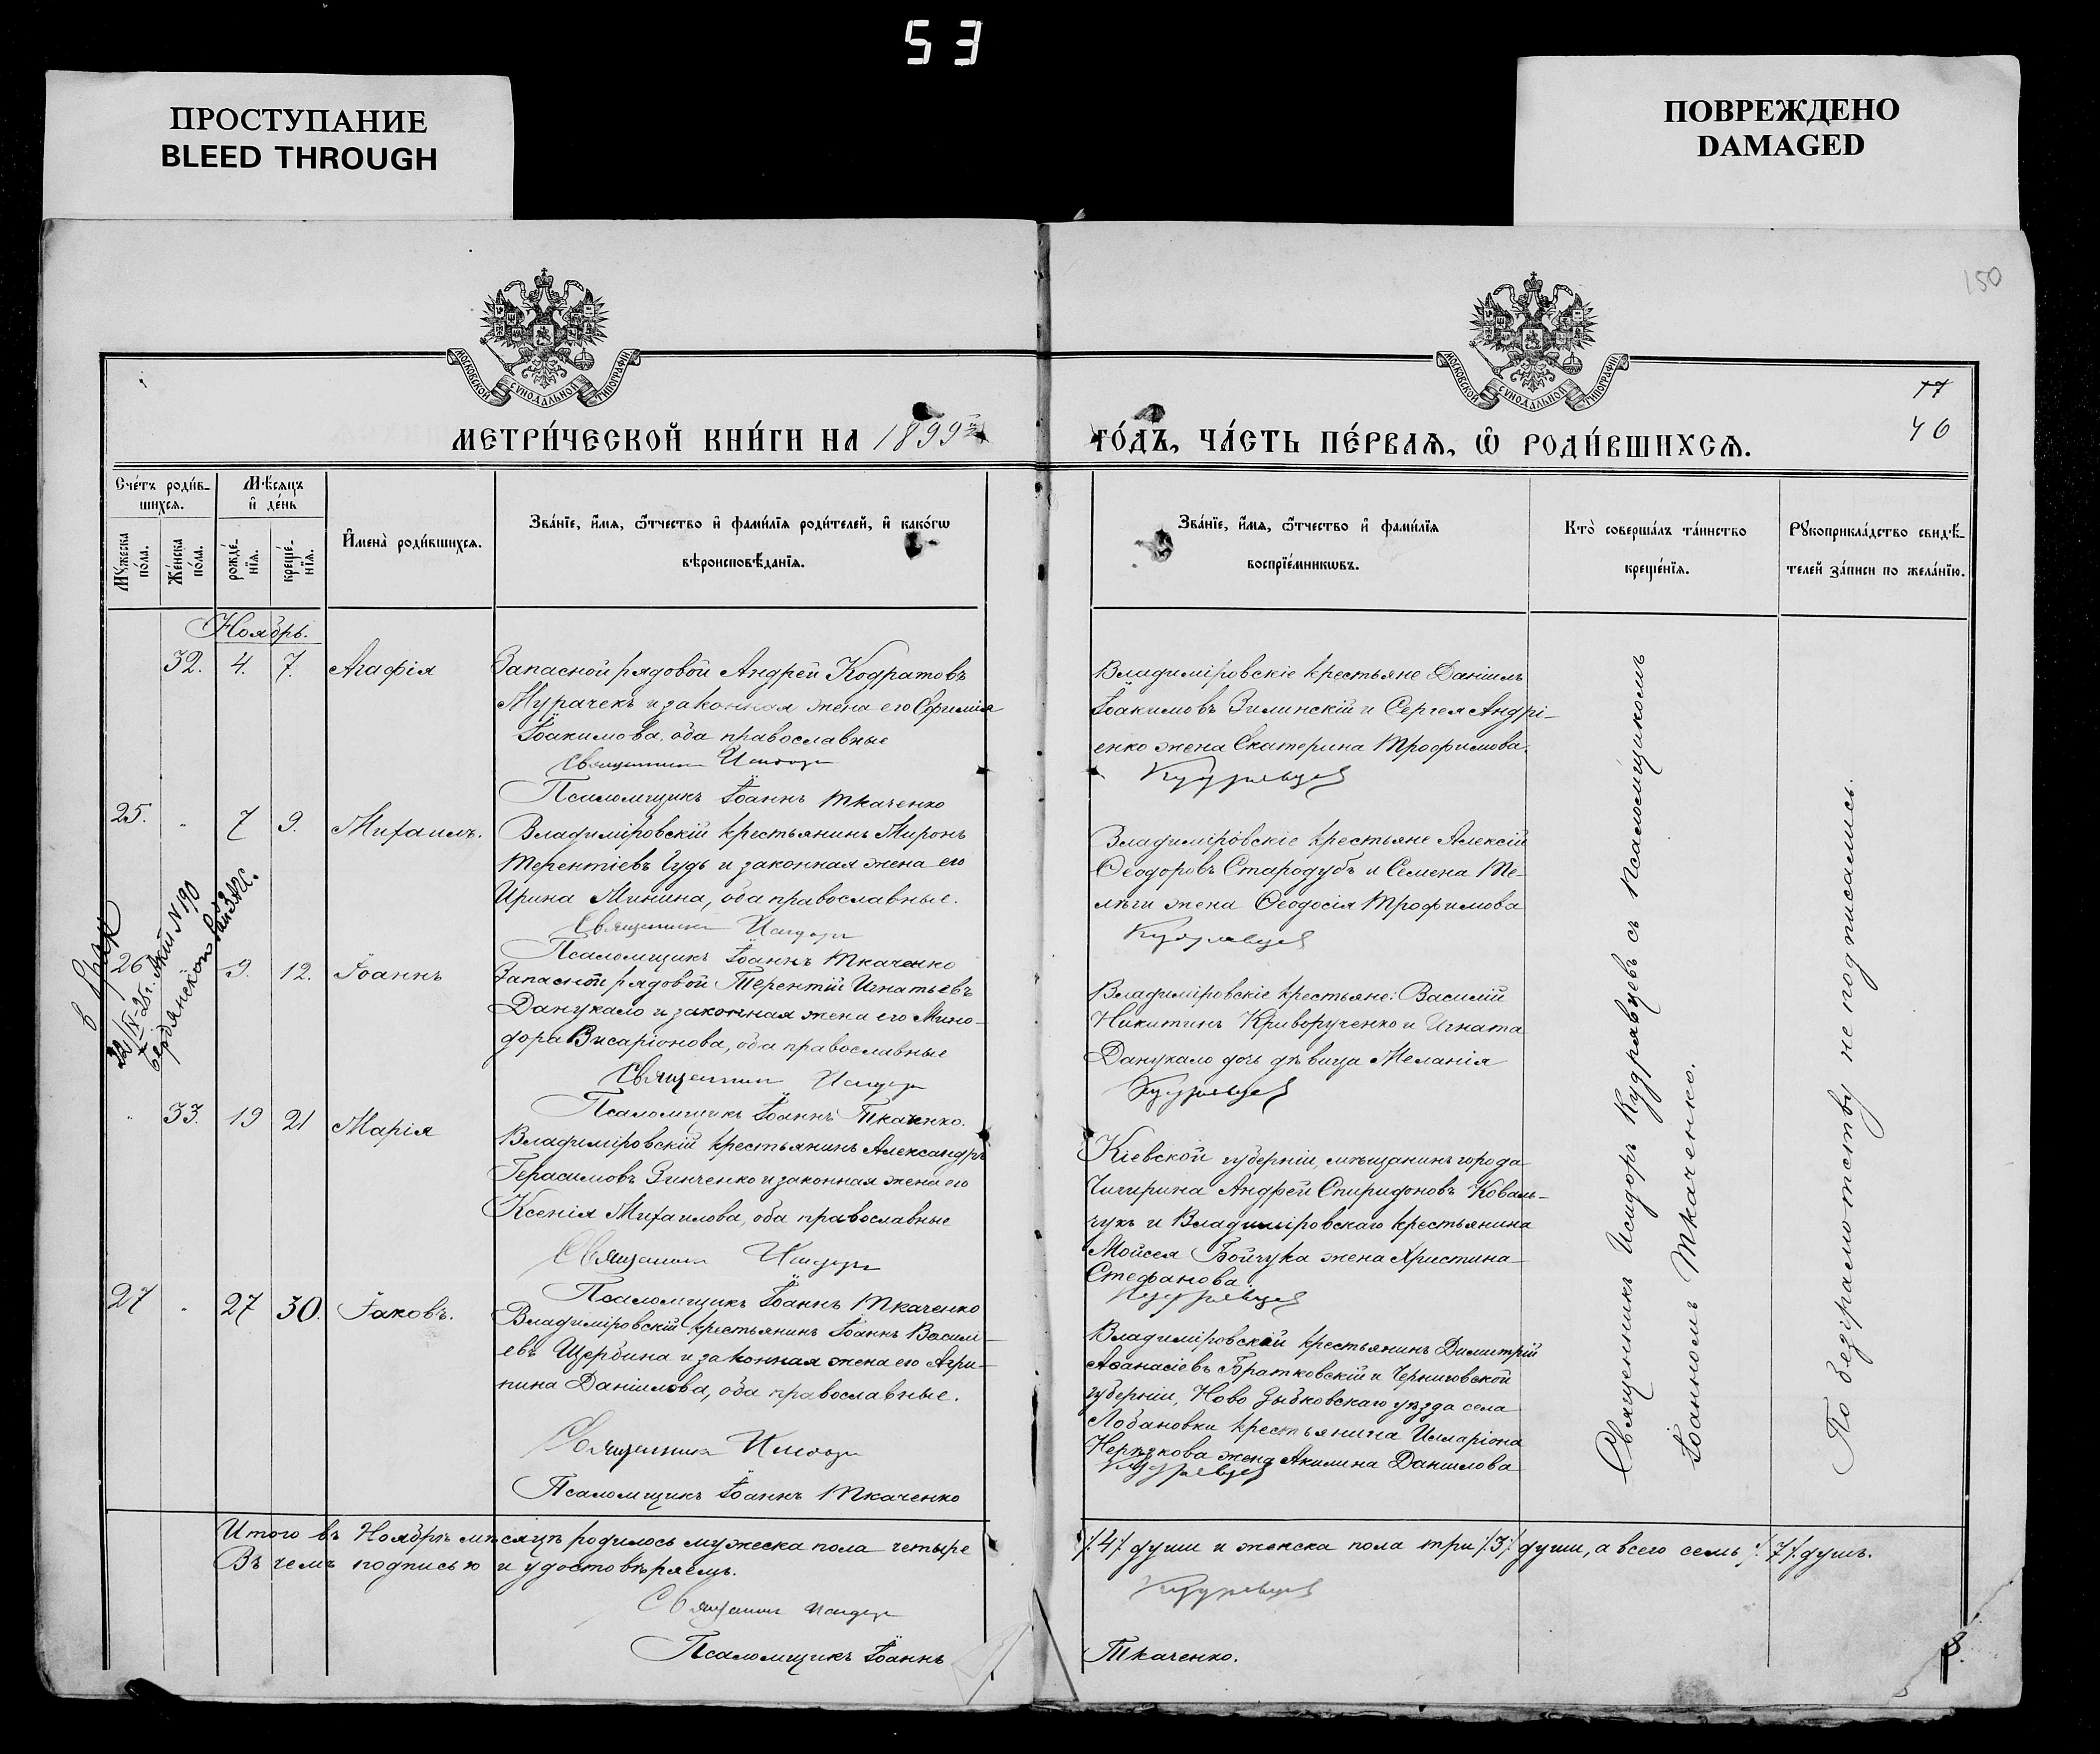 53
ПРОСТУПАНИЕ
BLEED THROUGH
ПОВРЕЖДЕНО
DAMAGED
150
МОСКОВСКОЙ СѴНОДАЛЬНОЙ ТИПОГРАФІИ
МОСКОВСКОЙ СѴНОДАЛЬНОЙ ТИПОГРАФІИ
77
46
МЕТРИ́ЧЕСКОЙ КНИ́ГИ НА 1899й
ГО́ДЪ, ЧА́СТЬ ПЕ́РВАЯ, Ѡ РОДИ́ВШИХСЯ.
Сче́тъ роди́в-
шихся.
Мѣсяцъ
и҆ де́нь
Мꙋ́жеска
по́ла.
Же́нска
по́ла.
рожде́-
нїя.
креще́-
нїя.
И҆мена̀ роди́вшихся.
Зва́нїе, и҆́мя, ѻ҆́тчество и҆ фами́лїя роди́телей, и҆ како́гѡ
вѣроисповѣ́данїя.
Зва́нїе, и҆́мя, ѻ҆́тчество и҆ фами́лїя
воспрїе́мникѡвъ.
Кто̀ соверша́лъ та́инство
креще́нїя.
Рꙋкоприкла́дство свидѣ́-
телей за́писи по жела́нїю.
Ноябрь.
32. 4. 7. Агафія
Запасной рядовой Андрей Кодратовъ
Мурачекъ и законная жена его Ефимія
Іоакимова, оба православные
Священникъ Исидоръ
Псаломщикъ Іоаннъ Ткаченко
Владиміровскіе крестьяне Даніилъ
Іоакимовъ Зилинскій и Сергея Андрі-
енко жена Екатерина Трофимова.
Кудрявцев
25. " 7 9. Михаилъ.
Владиміровскій крестьянинъ Миронъ
Терентіевъ Чудъ и законная жена его
Ирина Минина, оба православные.
Священникъ Исидоръ
Псаломщикъ Іоаннъ Ткаченко
Владиміровскіе крестьяне Алексій
Ѳеодоровъ Стародубъ и Семена Те-
лѣги жена Ѳеодосія Трофимова
Кудрявцев
в брак
22/IX-25г. Акт N 190
Бердянской Рай ЗАГС.
26 " 9. 12. Іоаннъ
Запасной рядовой Терентій Игнатьевъ
Данукало и законная жена его Мино-
дора Висаріонова, оба православные
Священникъ Исидоръ
Псаломщикъ Іоаннъ Ткаченко.
Владиміровскіе крестьяне: Василій
Никитинъ Криворученко и Игната
Данукало дочь дѣвица Меланія
Кудрявцев
" 33. 19 21 Марія
Владиміровскій крестьянинъ Александръ
Герасимовъ Зинченко и законная жена его
Ксенія Михаилова, оба православные
Священникъ Исидоръ
Псаломщикъ Іоаннъ Ткаченко
Кіевской губерніи, мѣщанинъ города
Чигирина Андрей Спиридоновъ Коваль-
чукъ и Владиміровскаго крестьянина
Мойсея Бойчука жена Христина
Стефанова.
Кудрявцев
27 " 27 30. Іаковъ.
Владиміровскій крестьянинъ Іоаннъ Васили-
евъ Щербина и законная жена его Агри-
пина Даніилова, оба православные.
Священникъ Исидоръ
Псаломщикъ Іоаннъ Ткаченко
Владиміровский крестьянинъ Димитрій
Аѳанасіевъ Братковскій и Черниговской
губерніи, Ново Зыбковскаго уѣзда села
Лобановки крестьянина Илларіона
жена Акилина Даніилова
Кудрявцев
Священникъ Исидоръ Кудрявцевъ съ псаломщикомъ
Іоанномъ Ткаченко.
По безграмотству не подписались.
Итого въ Ноябрѣ мѣсяцѣ родилось мужеска пола четыре
/.4/. души и женска пола три /.3/. души, а всего семь /. 7/. душъ.
Въ чемъ подписью и удостовѣряемъ.
Священникъ Исидоръ
Кудрявцев
Псаломщикъ Іоаннъ
Ткаченко.
8.